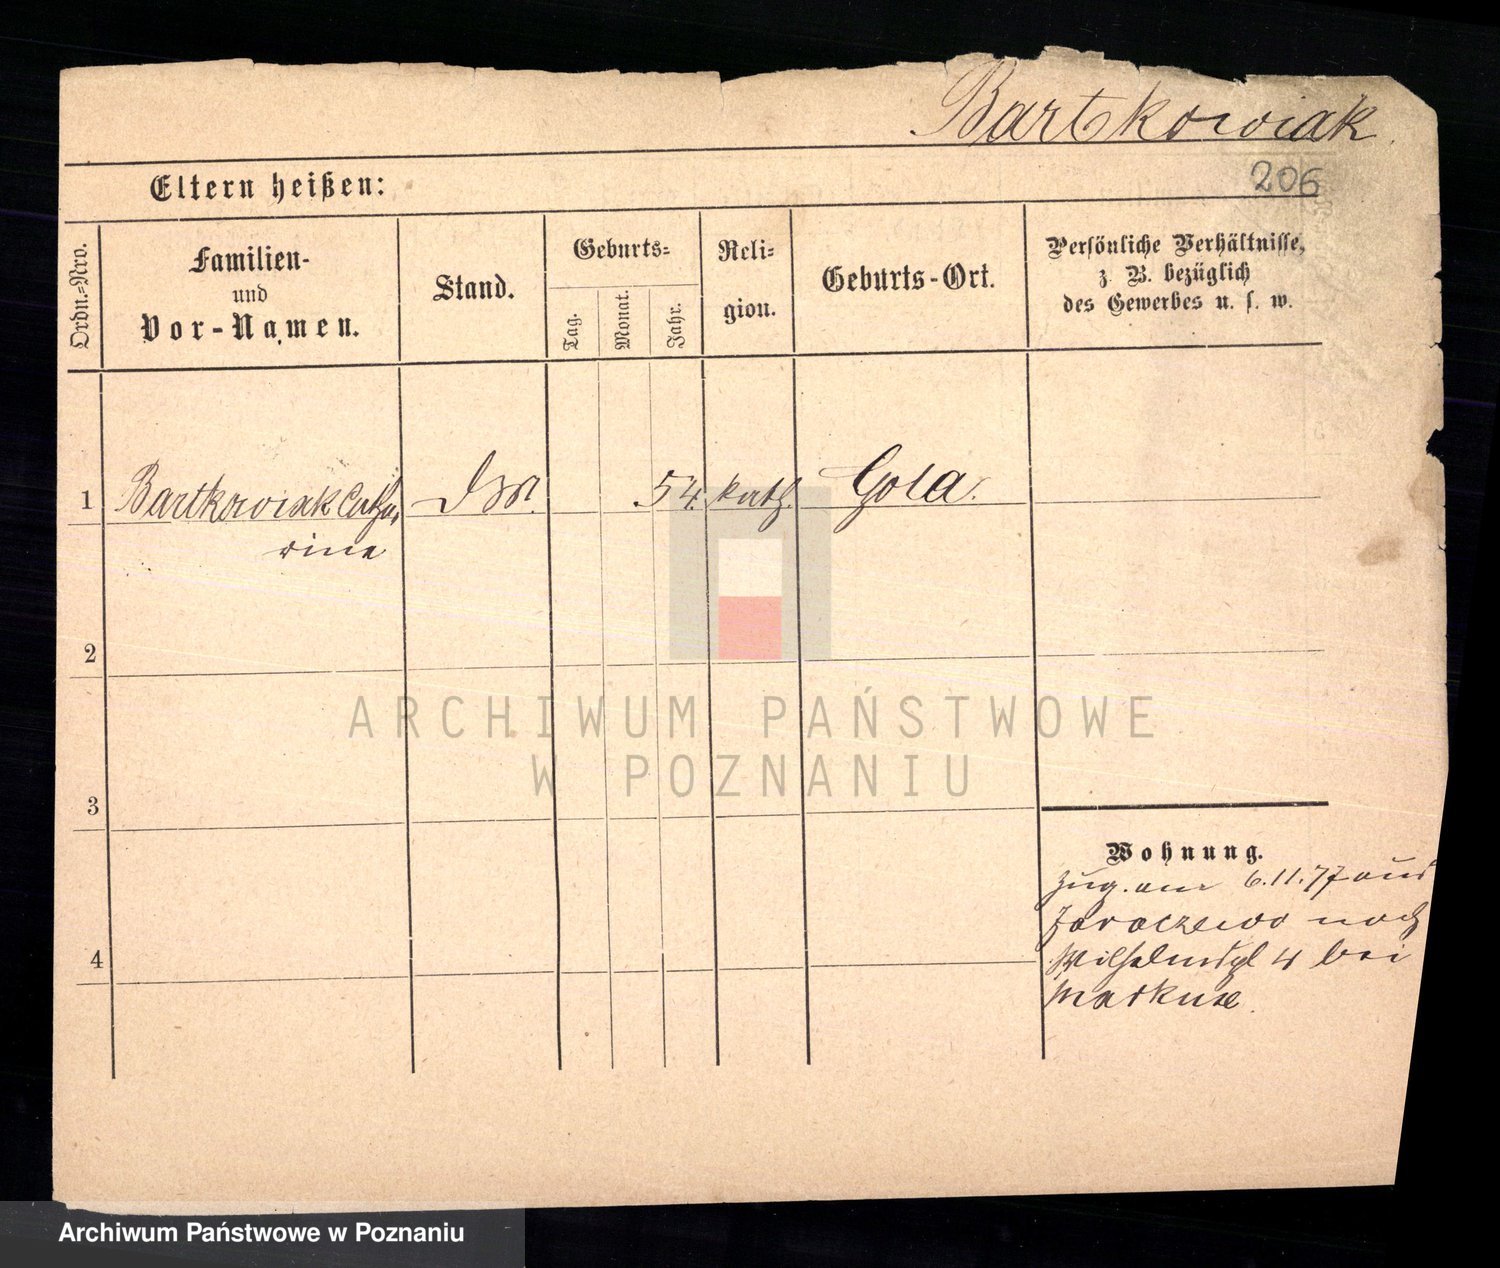 Bartkowiak
206
Eltern heißen:
Ordn.-Nro.
Familien-
und
Vor-Namen.
Stand.
Geburts-
Tag.
Monat.
Jahr.
Reli-
gion.
Geburts-Ort.
Persönliche Verhältnisse,
z. B. bezüglich
des Gewerbes u. s. w.
1
Bartkowiak Catha-
rine
54.
kath.
Gola.
2
3
4
Wohnung.
Zug. am 6.11.77 aus
Jaraczewo nach
Wilhelmspl 4 bei
Markuse.
ARCHIWUM PAŃSTWOWE
W POZNANIU
Archiwum Państwowe w Poznaniu